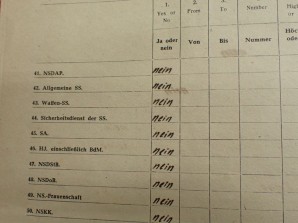 1. 2. 3. 4.
Yes or No From To Number High
Ja oder nein Von Bis Nummer Höc
oder
41. NSDAP. nein
42. Allgemeine SS. nein
43. Waffen-SS. nein
44. Sicherheitsdienst der SS. nein
45. SA. nein
46. HJ. einschließlich BdM. nein
47. NSDStB. nein
48. NSDoB. nein
49. NS-Frauenschaft nein
50. NSKK. nein